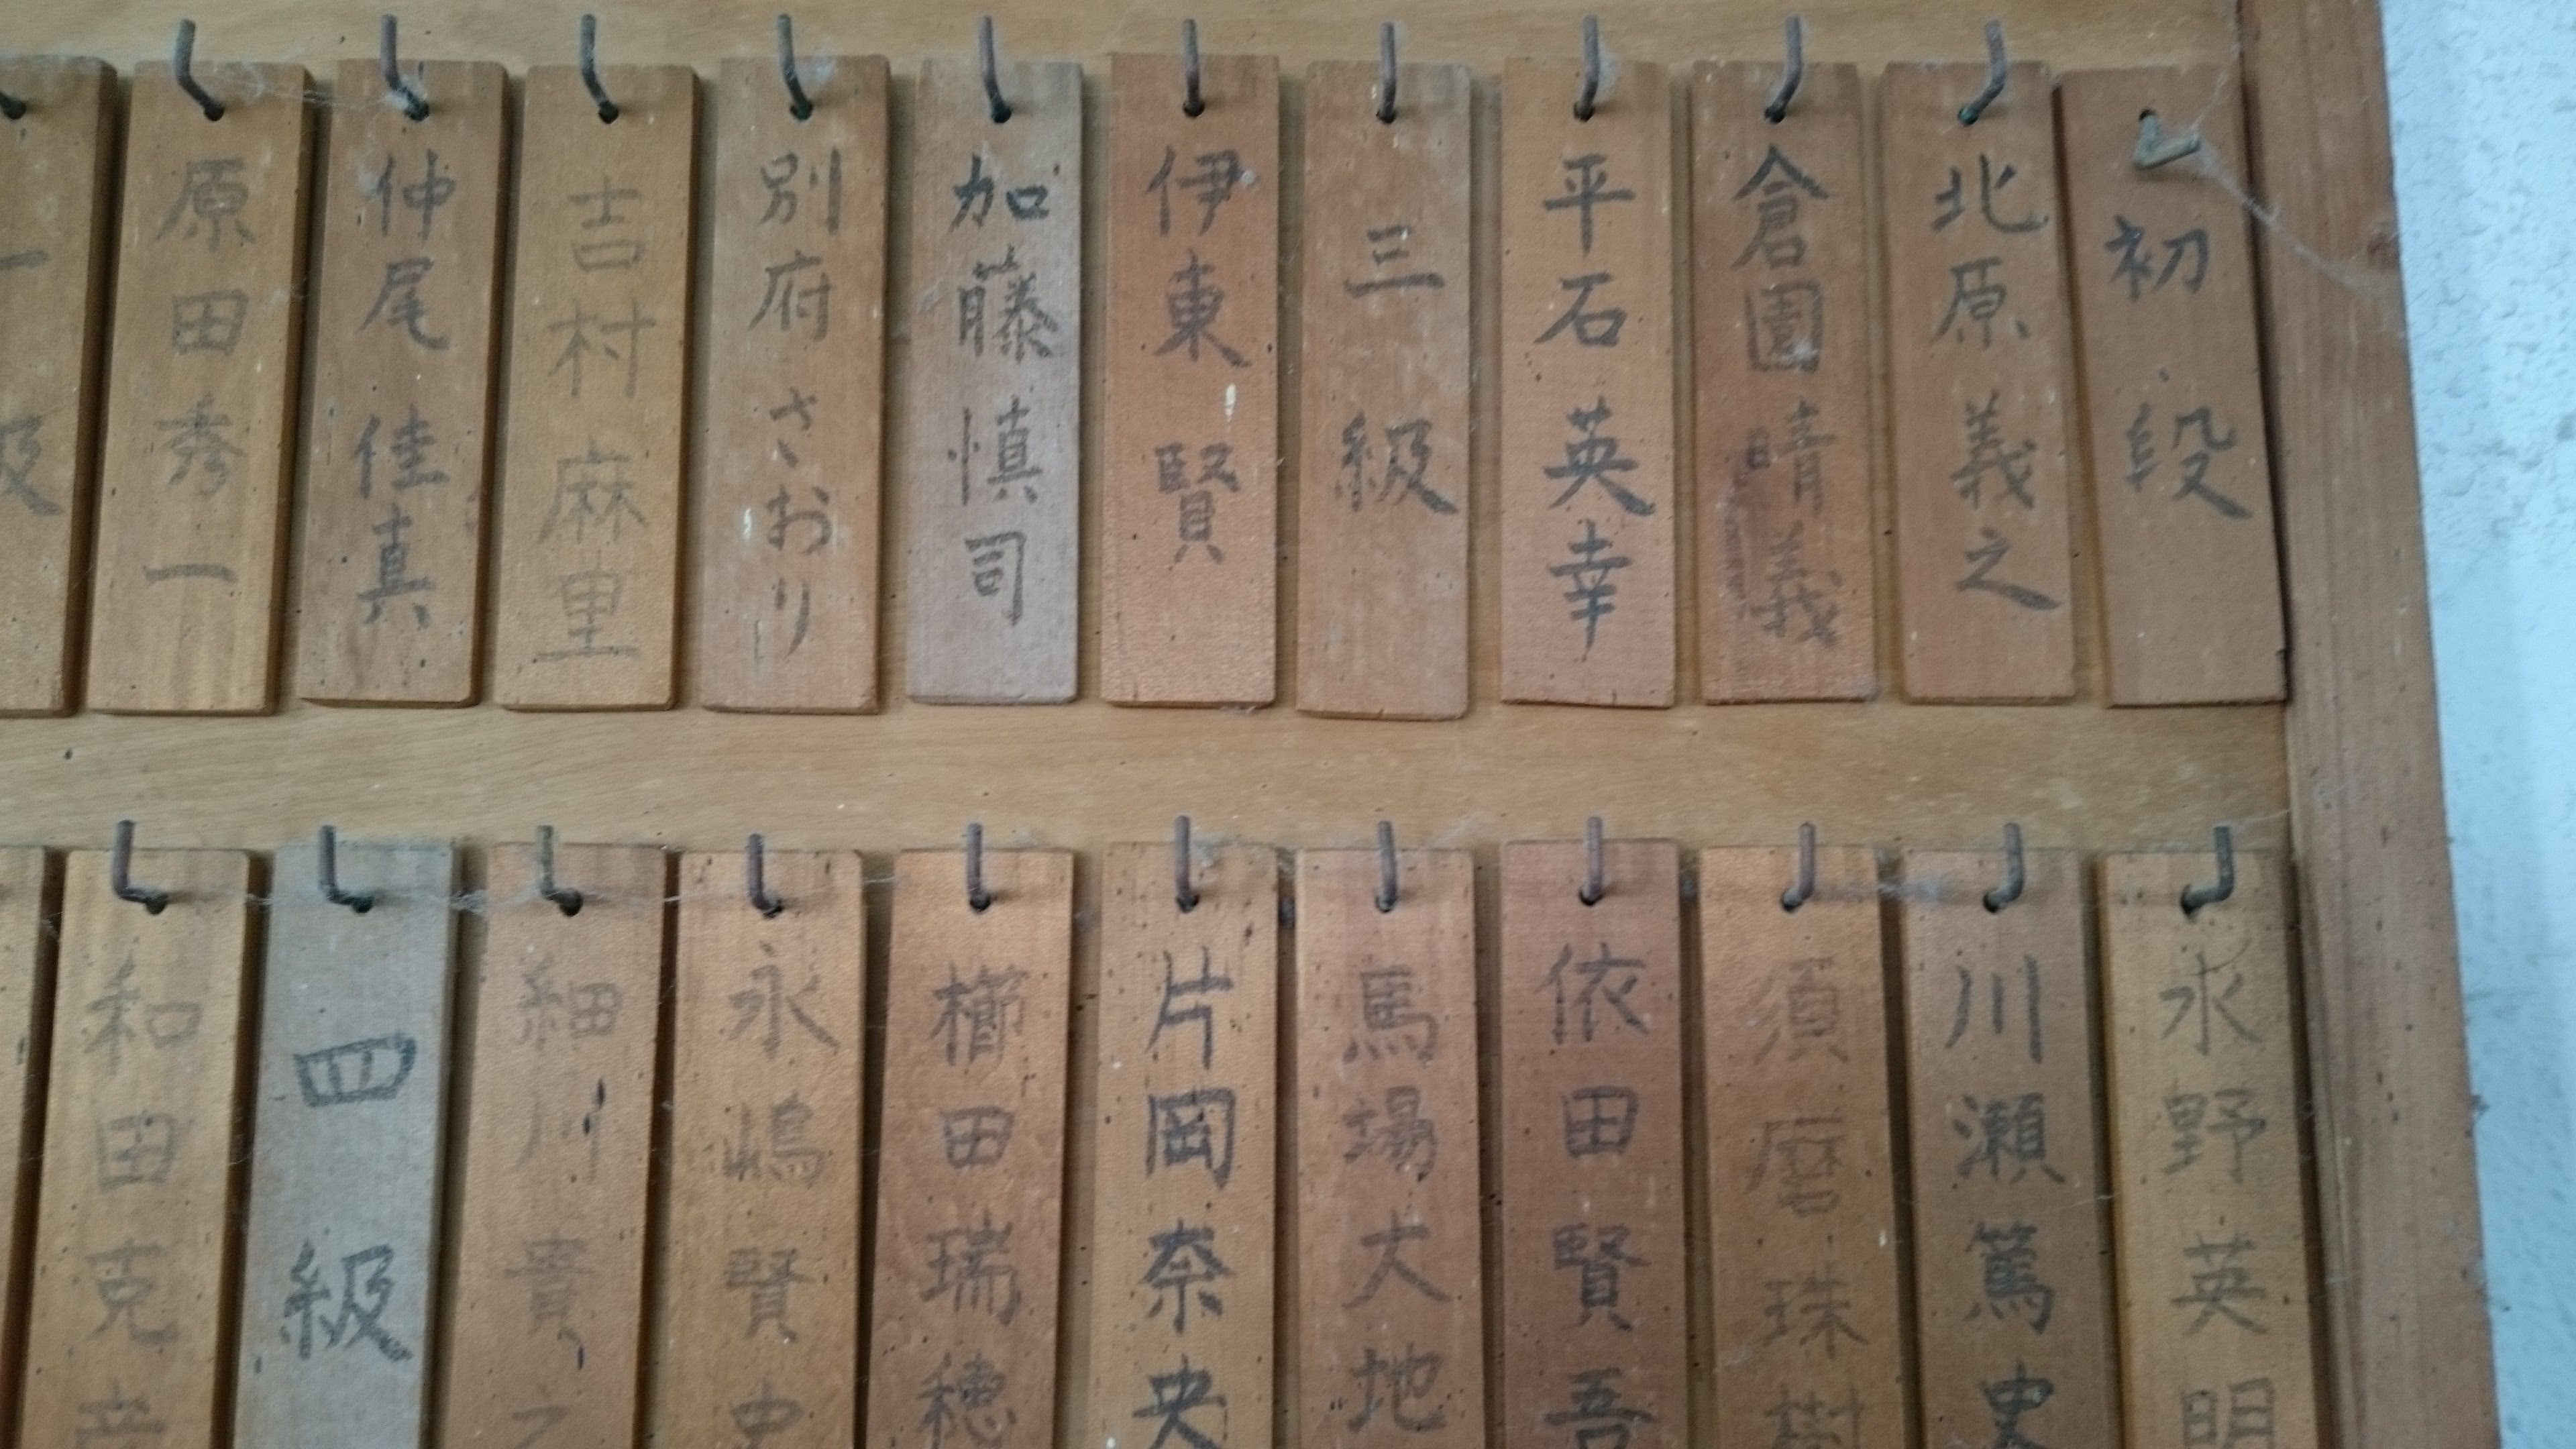 初段
北原義之
倉園晴義
平石英幸
三級
伊東賢
加藤慎司
別府さおり
吉村麻里
仲尾佳真
原田秀一
級
水野英明
川瀬篤史
須磨珠樹
依田賢吾
馬場大地
片岡奈央
櫛田瑞穂
永嶋賢史
細川貴之
四級
和田克彦